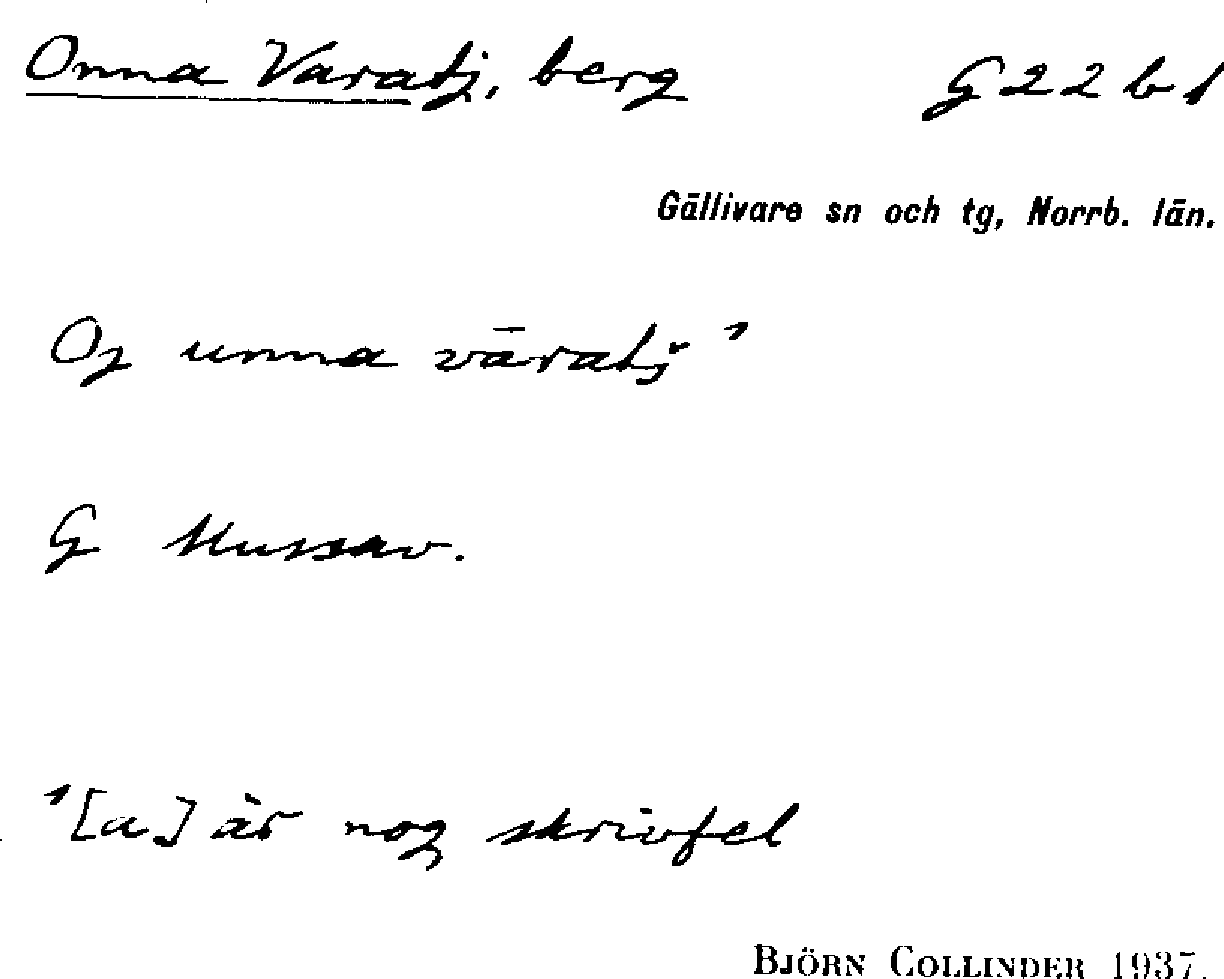 Onna Varatj, berg G 22 b 1
Gällivare sn och tg, Norrb. län.
Oj unna vāratj ¹
G Mussav.
¹[a] är nog skrivfel
BJÖRN COLLINDER 1937.